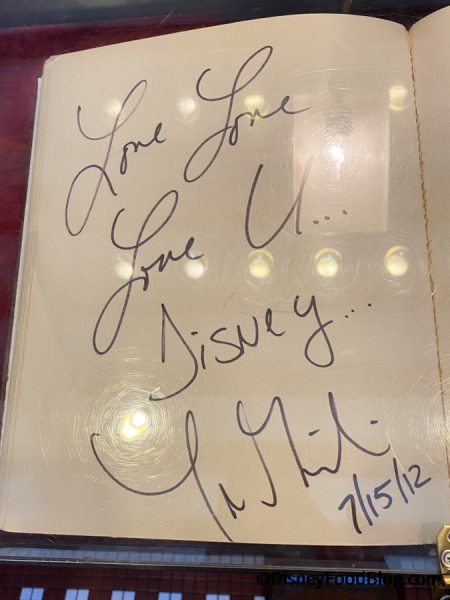 Love Love
Love U...
Disney...
7/15/12
©DisneyFoodBlog.com